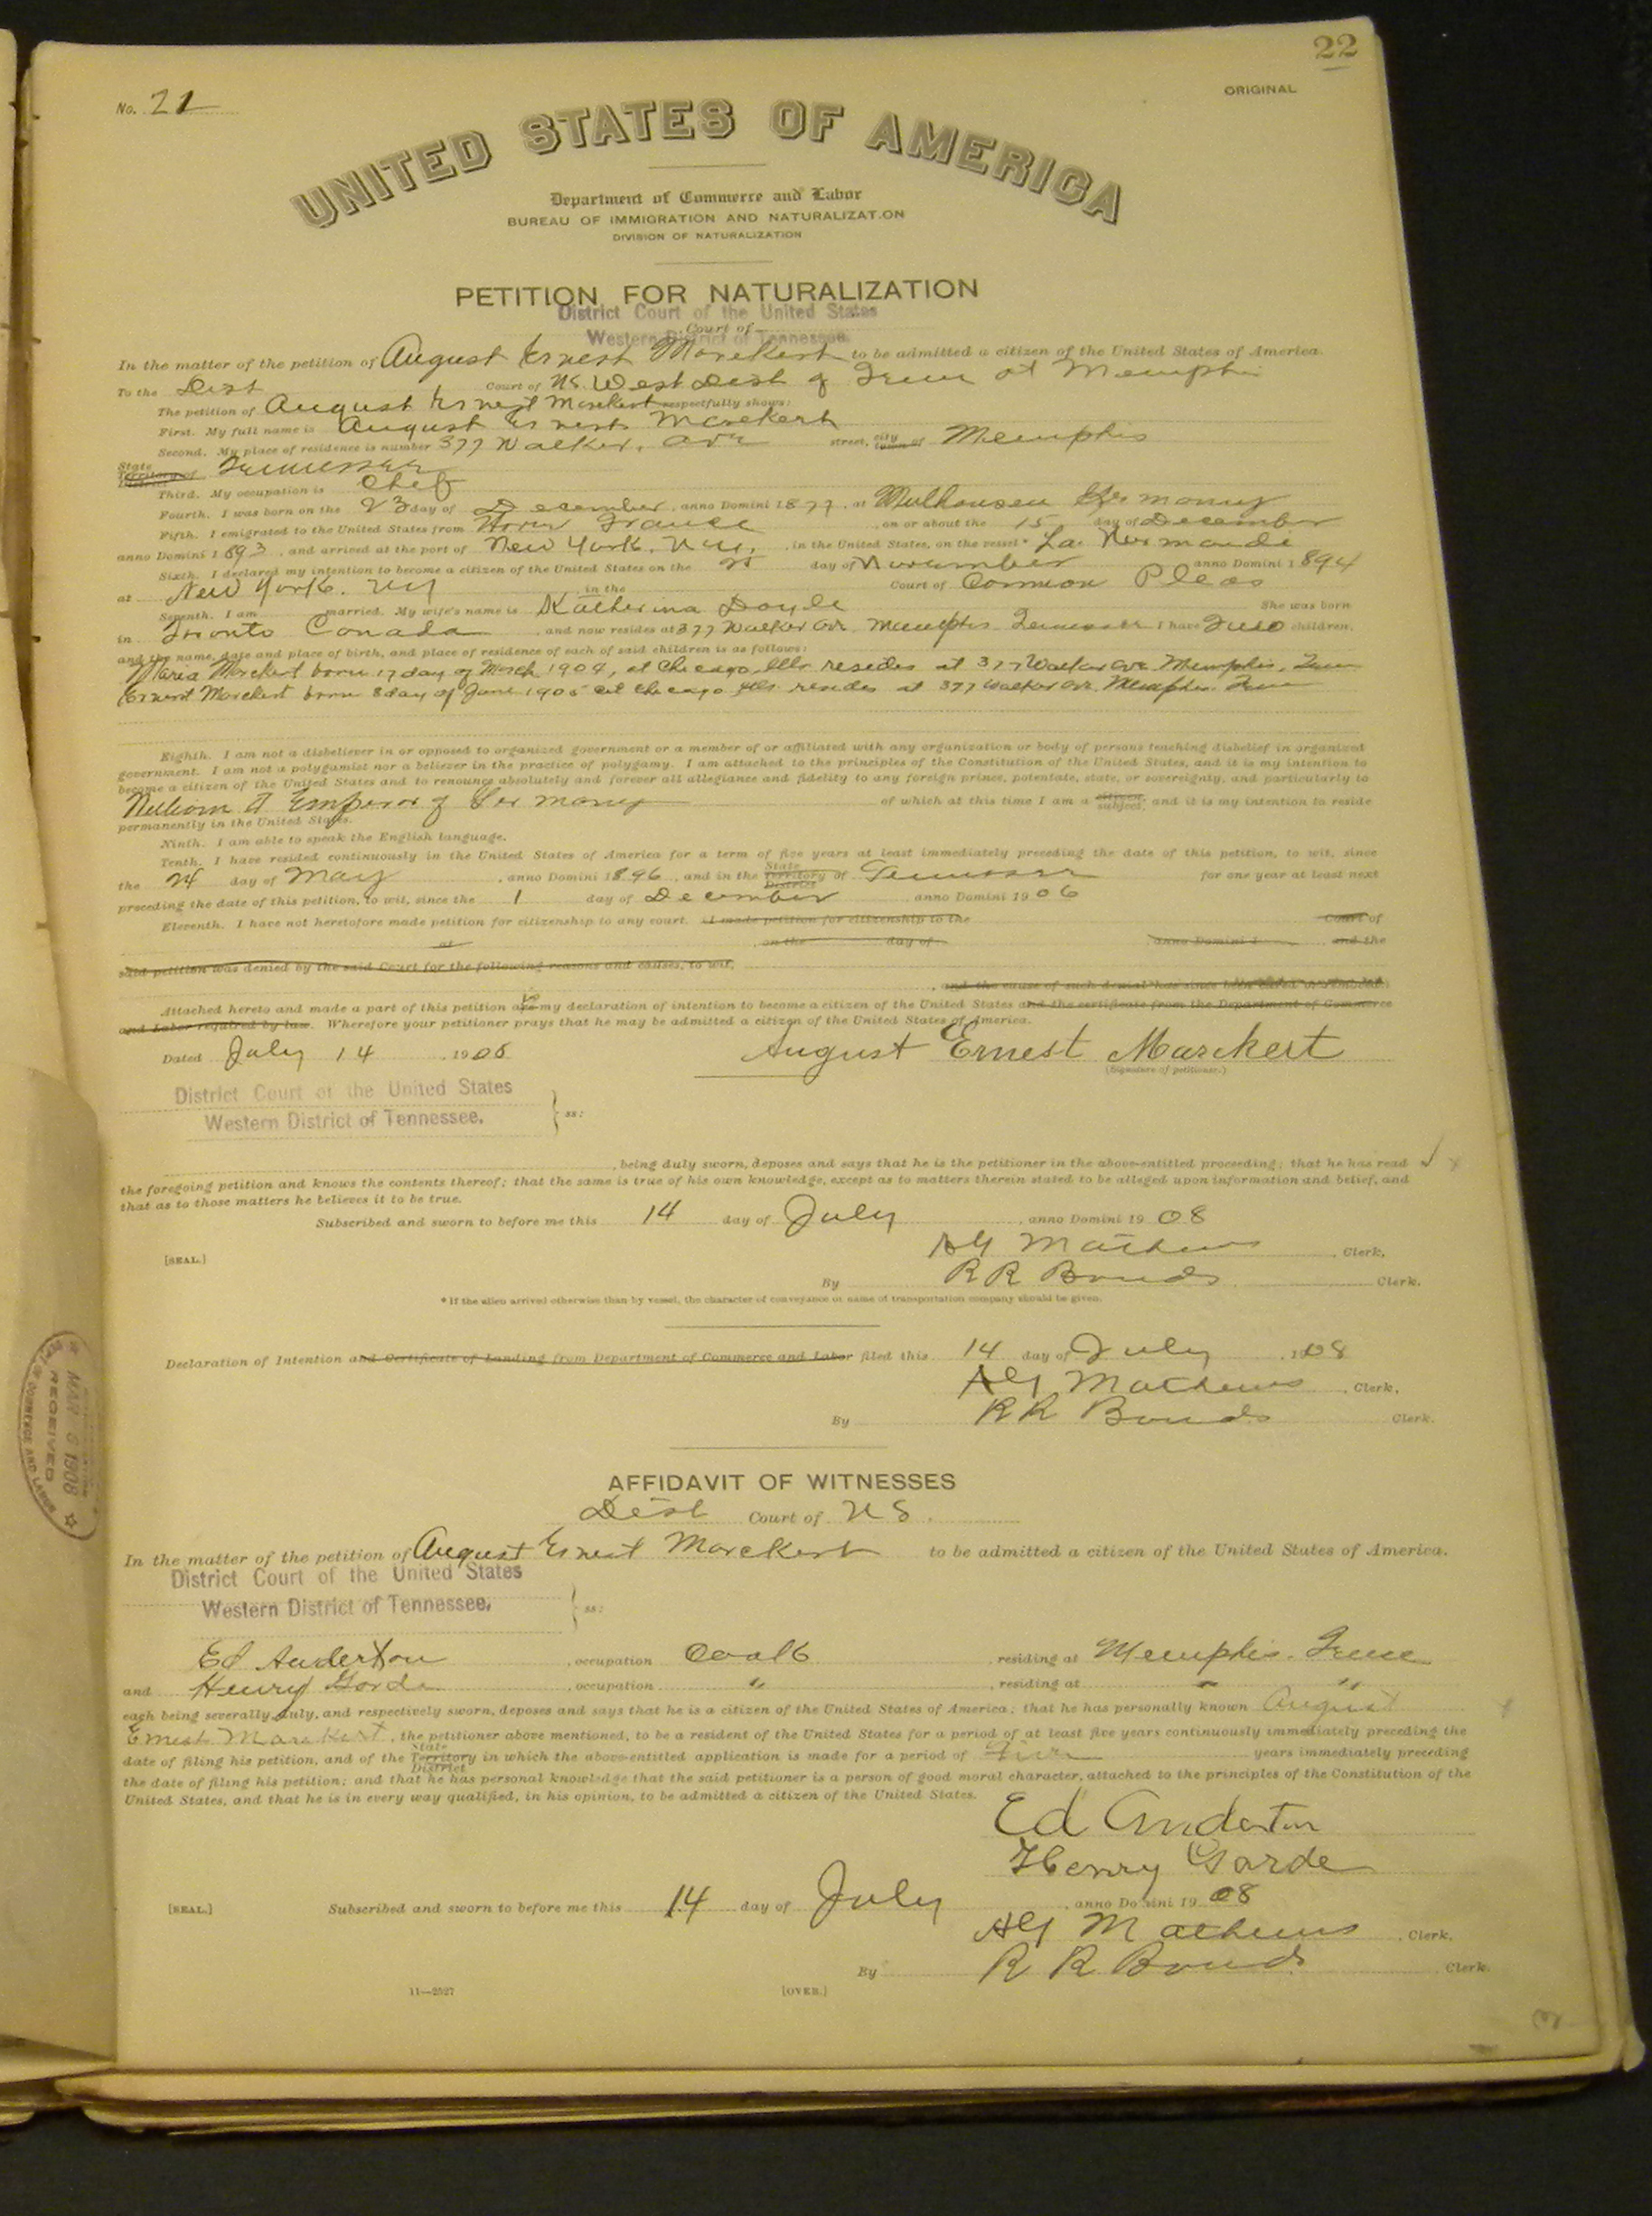 22
No. 21
ORIGINAL
UNITED STATES OF AMERICA
Department of Commerce and Labor
BUREAU OF IMMIGRATION AND NATURALIZATION
DIVISION OF NATURALIZATION
PETITION FOR NATURALIZATION
District Court of the United States
Court of
Western District of Tennessee.
In the matter of the petition of August Ernest Marckert to be admitted a citizen of the United States of America.
To the Dist Court of US West Dist of Tenn at Memphis
The petition of August Ernest Marckert respectfully shows:
First. My full name is August Ernest Marckert
Second. My place of residence is number 377 Walker. ave street, city town of Memphis
State Territory District of Tennessee
Third. My occupation is Chef
Fourth. I was born on the 23 day of December, anno Domini 1877, at Mulhausen Germany
Fifth. I emigrated to the United States from Havre France, on or about the 15 day of December
anno Domini 1893, and arrived at the port of New York. N.Y., in the United States, on the vessel* La Normandi
Sixth. I declared my intention to become a citizen of the United States on the day of November anno Domini 1894
at New York. NY in the Court of Common Pleas
Seventh. I am married. My wife's name is Katherina Doyle She was born
in Toronto Canada, and now resides at 377 Walker ave. Memphis Tennessee I have Two children,
and the name, date and place of birth, and place of residence of each of said children is as follows:
Maria Marckert born 17 day of March 1904, at Chicago, Ills resides at 377 Walker ave Memphis, Tenn
Ernest Marckert born 8 day of June 1905 at Chicago Ills resides at 377 Walker ave, Memphis. Tenn
Eighth. I am not a disbeliever in or opposed to organized government or a member of or affiliated with any organization or body of persons teaching disbelief in organized
government. I am not a polygamist nor a believer in the practice of polygamy. I am attached to the principles of the Constitution of the United States, and it is my intention to
become a citizen of the United States and to renounce absolutely and forever all allegiance and fidelity to any foreign prince, potentate, state, or sovereignty, and particularly to
Emperor of Germany of which at this time I am a citizen subject, and it is my intention to reside
permanently in the United States.
Ninth. I am able to speak the English language.
Tenth. I have resided continuously in the United States of America for a term of five years at least immediately preceding the date of this petition, to wit, since
the 24 day of May, anno Domini 1896, and in the State Territory District of Tennessee for one year at least next
preceding the date of this petition, to wit, since the 1 day of December anno Domini 1906
Eleventh. I have not heretofore made petition for citizenship to any court. I made petition for citizenship to the Court of
at, on the day of, anno Domini 1, and the
said petition was denied by the said Court for the following reasons and causes, to wit,
, and the cause of such denial has since been cured or removed.
Attached hereto and made a part of this petition are is my declaration of intention to become a citizen of the United States and the certificate from the Department of Commerce
and Labor required by law. Wherefore your petitioner prays that he may be admitted a citizen of the United States of America.
Dated July 14, 1908 August Ernest Marckert
(Signature of petitioner.)
District Court of the United States
Western District of Tennessee. } ss:
, being duly sworn, deposes and says that he is the petitioner in the above-entitled proceeding; that he has read
the foregoing petition and knows the contents thereof; that the same is true of his own knowledge, except as to matters therein stated to be alleged upon information and belief, and
that as to those matters he believes it to be true.
Subscribed and sworn to before me this 14 day of July, anno Domini 1908
Mathews, Clerk.
[SEAL.]
By R R Bonds Clerk.
* If the alien arrived otherwise than by vessel, the character of conveyance or name of transportation company should be given.
Declaration of Intention and Certificate of Landing from Department of Commerce and Labor filed this 14 day of July, 1908
Mathews, Clerk.
By RR Bonds Clerk.
MAR 6 1908
RECEIVED
OF COMMERCE AND LABOR
AFFIDAVIT OF WITNESSES
Dist Court of US.
In the matter of the petition of August Ernest Marckert to be admitted a citizen of the United States of America.
District Court of the United States
Western District of Tennessee, } ss:
Ed Anderton, occupation Cook, residing at Memphis. Tenn
and Henry Garde, occupation ", residing at " "
each being severally, duly, and respectively sworn, deposes and says that he is a citizen of the United States of America; that he has personally known August
Ernest Marckert, the petitioner above mentioned, to be a resident of the United States for a period of at least five years continuously immediately preceding the
date of filing his petition, and of the State Territory District in which the above-entitled application is made for a period of years immediately preceding
the date of filing his petition; and that he has personal knowledge that the said petitioner is a person of good moral character, attached to the principles of the Constitution of the
United States, and that he is in every way qualified, in his opinion, to be admitted a citizen of the United States.
Ed Anderton
Henry Garde
[SEAL.] Subscribed and sworn to before me this 14 day of July, anno Domini 1908
Mathews, Clerk.
By R R Bonds Clerk.
11—2527 [OVER.]